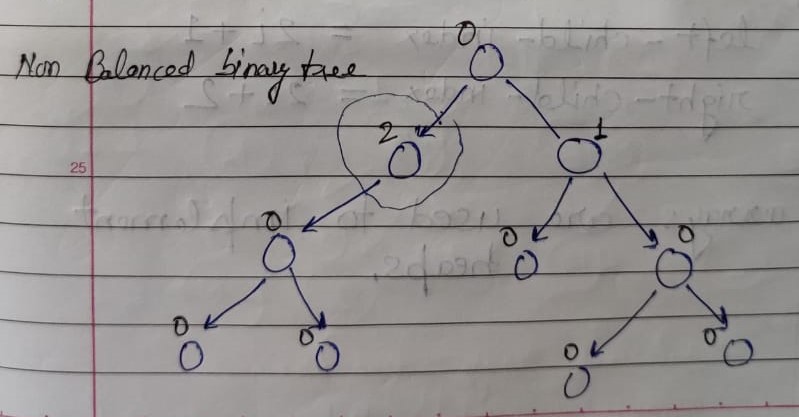 0
Non Balanced binary tree
2 1
25
0 0 0
0 0 0 0